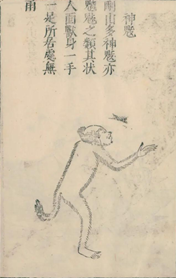 神䰠
剛山多神䰠亦
魑魅之類其状
人面獸身一手
一足所居處無
雨